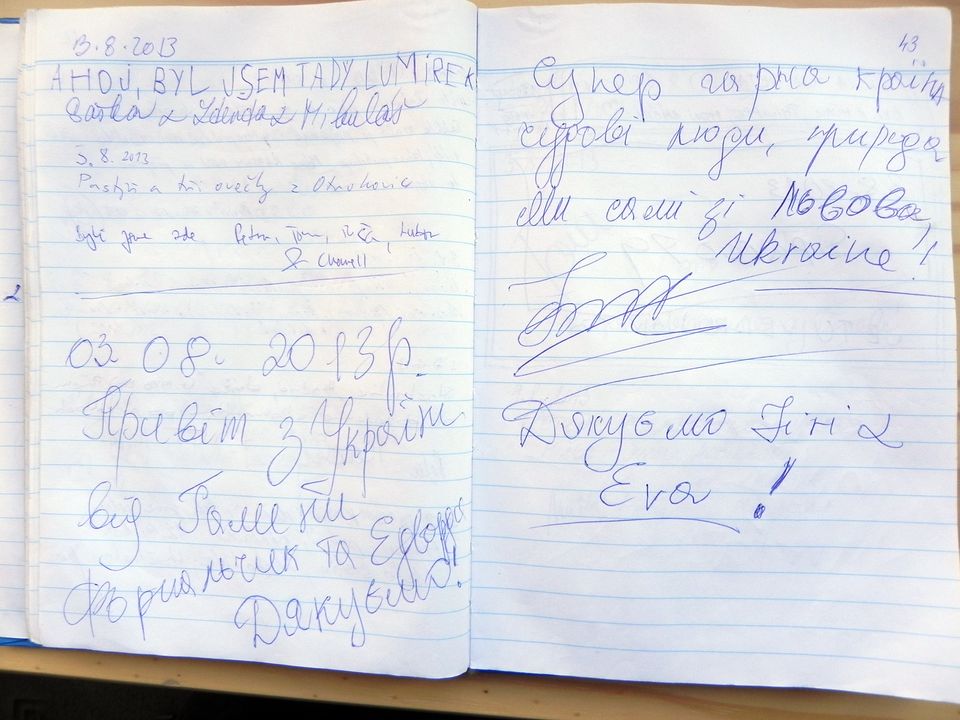 3.8.2013
AHOJ, BYL JSEM TADY LUMÍREK
Saška & Zdenda & Mikuláš
3.8.2013
Pastýř a tři ovečky z Otrokovic
Byli jsme zde Petra, Tom,
& Charell
03 08. 2013р.
Привіт з України
від Галини
Фірнальчик та Едварда
Дякуємо!
43
Супер гарна країна
чудові люди, природа
Ми самі зі Львова,
Ukraine!!
Дякуємо Зіні &
Eva!